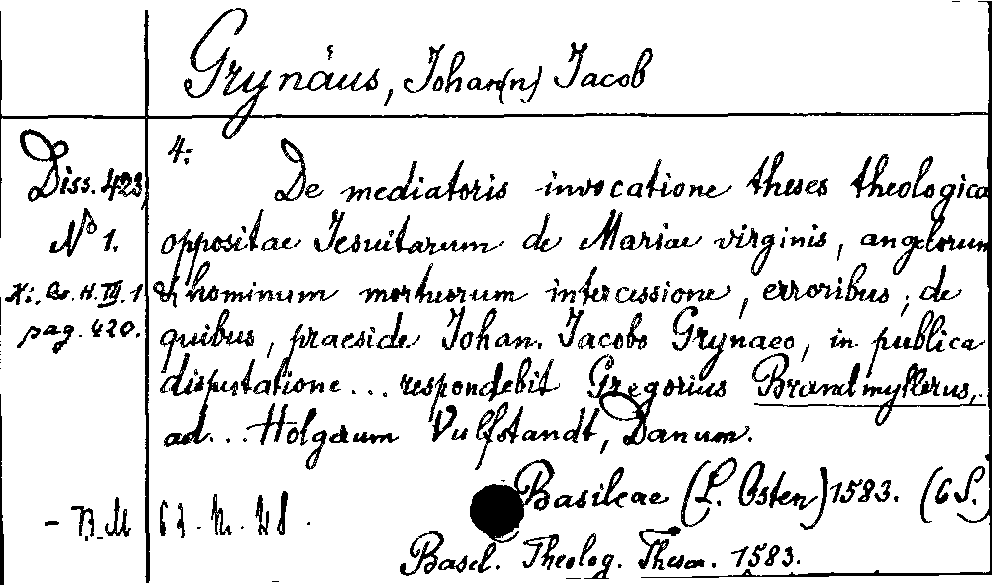 Grynäus, Johan(n) Jacob
4:
Diss. 423,
De mediatoris invocatione theses theologica
No 1.
oppositae Jesuitarum de Mariae virginis, angelorum
K: Bs. H. III. 1
& hominum mortuorum intercessione, erroribus, de
pag. 420.
quibus, praeside Johan. Jacobo Grynaeo, in publica
disputatione ... respondebit Gregorius Brandmyllerus,
ad... Holgerum Vulfstandt, Danum.
Basileae (L. Osten) 1583. (6 S.)
- B. M
Basel. Theolog. Thesen. 1583.